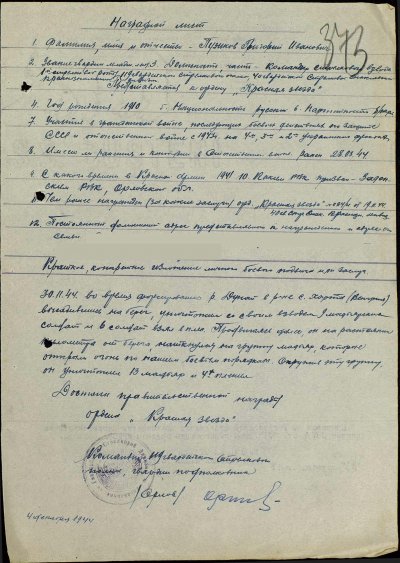 Наградной лист
373
1. Фамилия, имя и отчество - Пузиков Григорий Иванович
2. Звание гвардии мл. 3. Должность, часть - Командир стрелкового взвода
Представляется к ордену "Красная звезда"
4. Год рождения 1910 5. Национальность русский 6. Партийность
7. Участие в гражданской войне, последующих боевых действиях по защите
СССР и отечественной войне с 1942г. на 4м, 3м и 2м Украинском фронтах
8. Имеет ли ранения и контузии в Отечественной войне ранен 28.03.44
9. С какого времени в Красной армии 1941 10. Каким РВК призван - Задон-
ским РВК, Орловской обл.
11. Чем ранее награжден (за какие заслуги) орд. "Красная звезда"
12. Постоянный домашний адрес представляемого к награждению и адрес его
семьи.
Краткое, конкретное изложение личного боевого подвига или заслуг.
30.11.44. во время форсирования р. Дунай в р-не с. (Венгрия)
высадившись на берег, уничтожил со своим взводом
солдат и 6 солдат взял в плен. Продвигаясь далее он на расстоянии
километра от берега наткнулся на группу мадьяр, которые
открыли огонь по нашим боевым порядкам. Окружив эту группу,
он уничтожил 13 мадьяр и 4х пленил.
Достоин правительственной награды
ордена "Красная звезда"
Командир гвардейского стрелкового
полка, гвардии подполковник
/Орлов/
4 декабря 1944